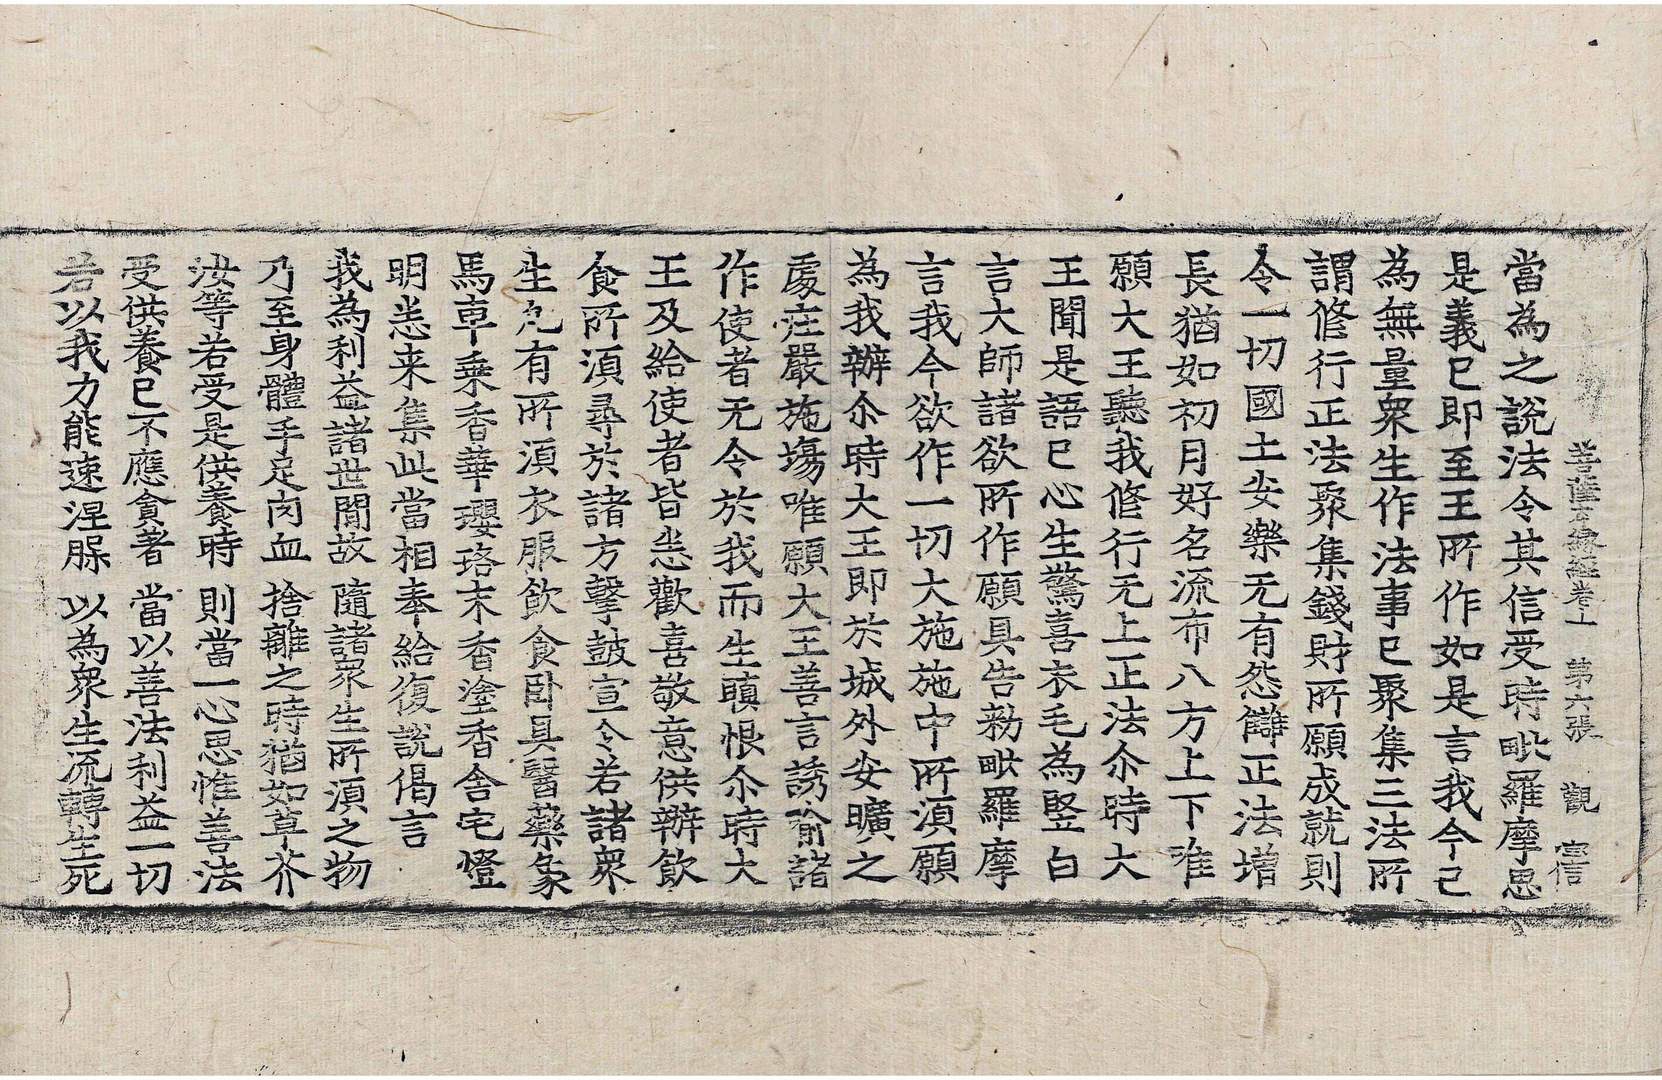 菩薩本緣經卷上 第六張 觀 宻信
當為之說法令其信受時毗羅摩思
是義已即至王所作如是言我今已
為無量衆生作法事已聚集三法所
謂修行正法聚集錢財所願成就則
令一切國土安樂无有怨讎正法增
長猶如初月好名流布八方上下唯
願大王聽我修行无上正法尒時大
王聞是語已心生驚喜衣毛為竪白
言大師諸欲所作願具告勑毗羅摩
言我今欲作一切大施施中所湏願
為我辦尒時大王即於城外安曠之
處莊嚴施塲唯願大王善言誘喻諸
作使者无令於我而生瞋恨尒時大
王及給使者皆悉歡喜敬意供辦飲
食所湏尋於諸方擊鼓宣令若諸衆
生凡有所湏衣服飲食卧具醫藥象
馬車乗香華瓔珞末香塗香舎宅燈
明悉来集此當相奉給復說偈言
我為利益諸世閒故 隨諸衆生所湏之物
乃至身體手足肉血 捨離之時猶如草芥
汝等若受是供養時 則當一心思惟善法
受供養已不應貪著 當以善法利益一切
若以我力能速涅槃 以為衆生流轉生死